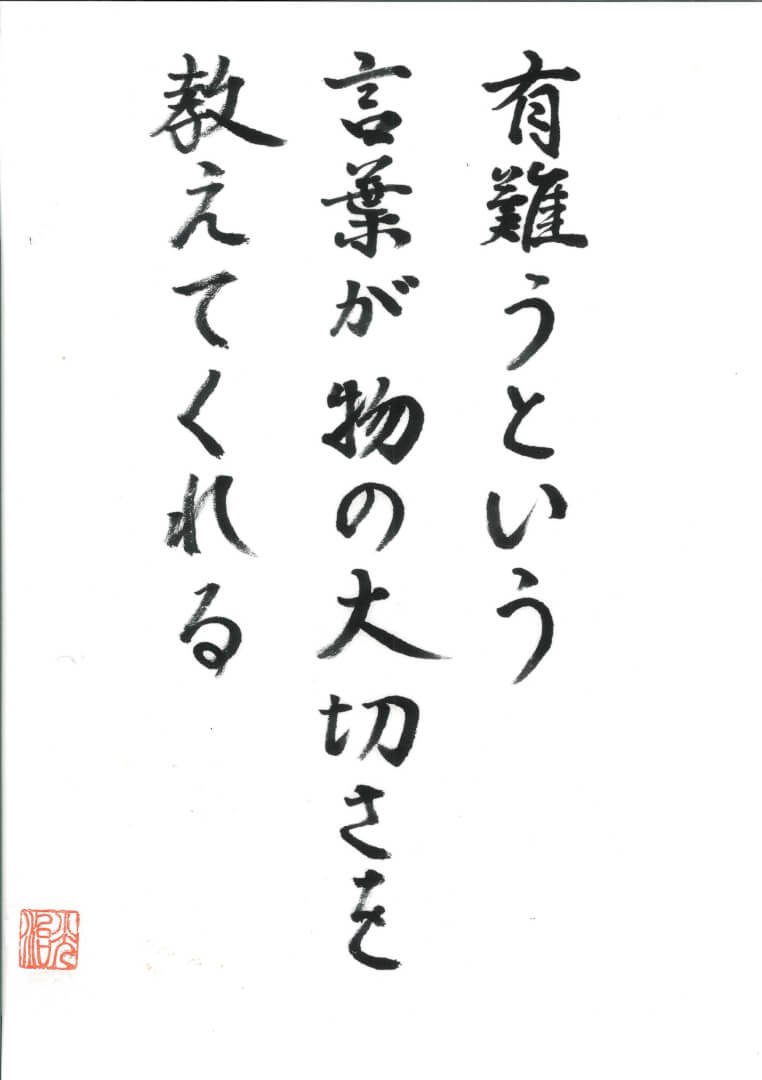 有難うという
言葉が物の大切さを
教えてくれる